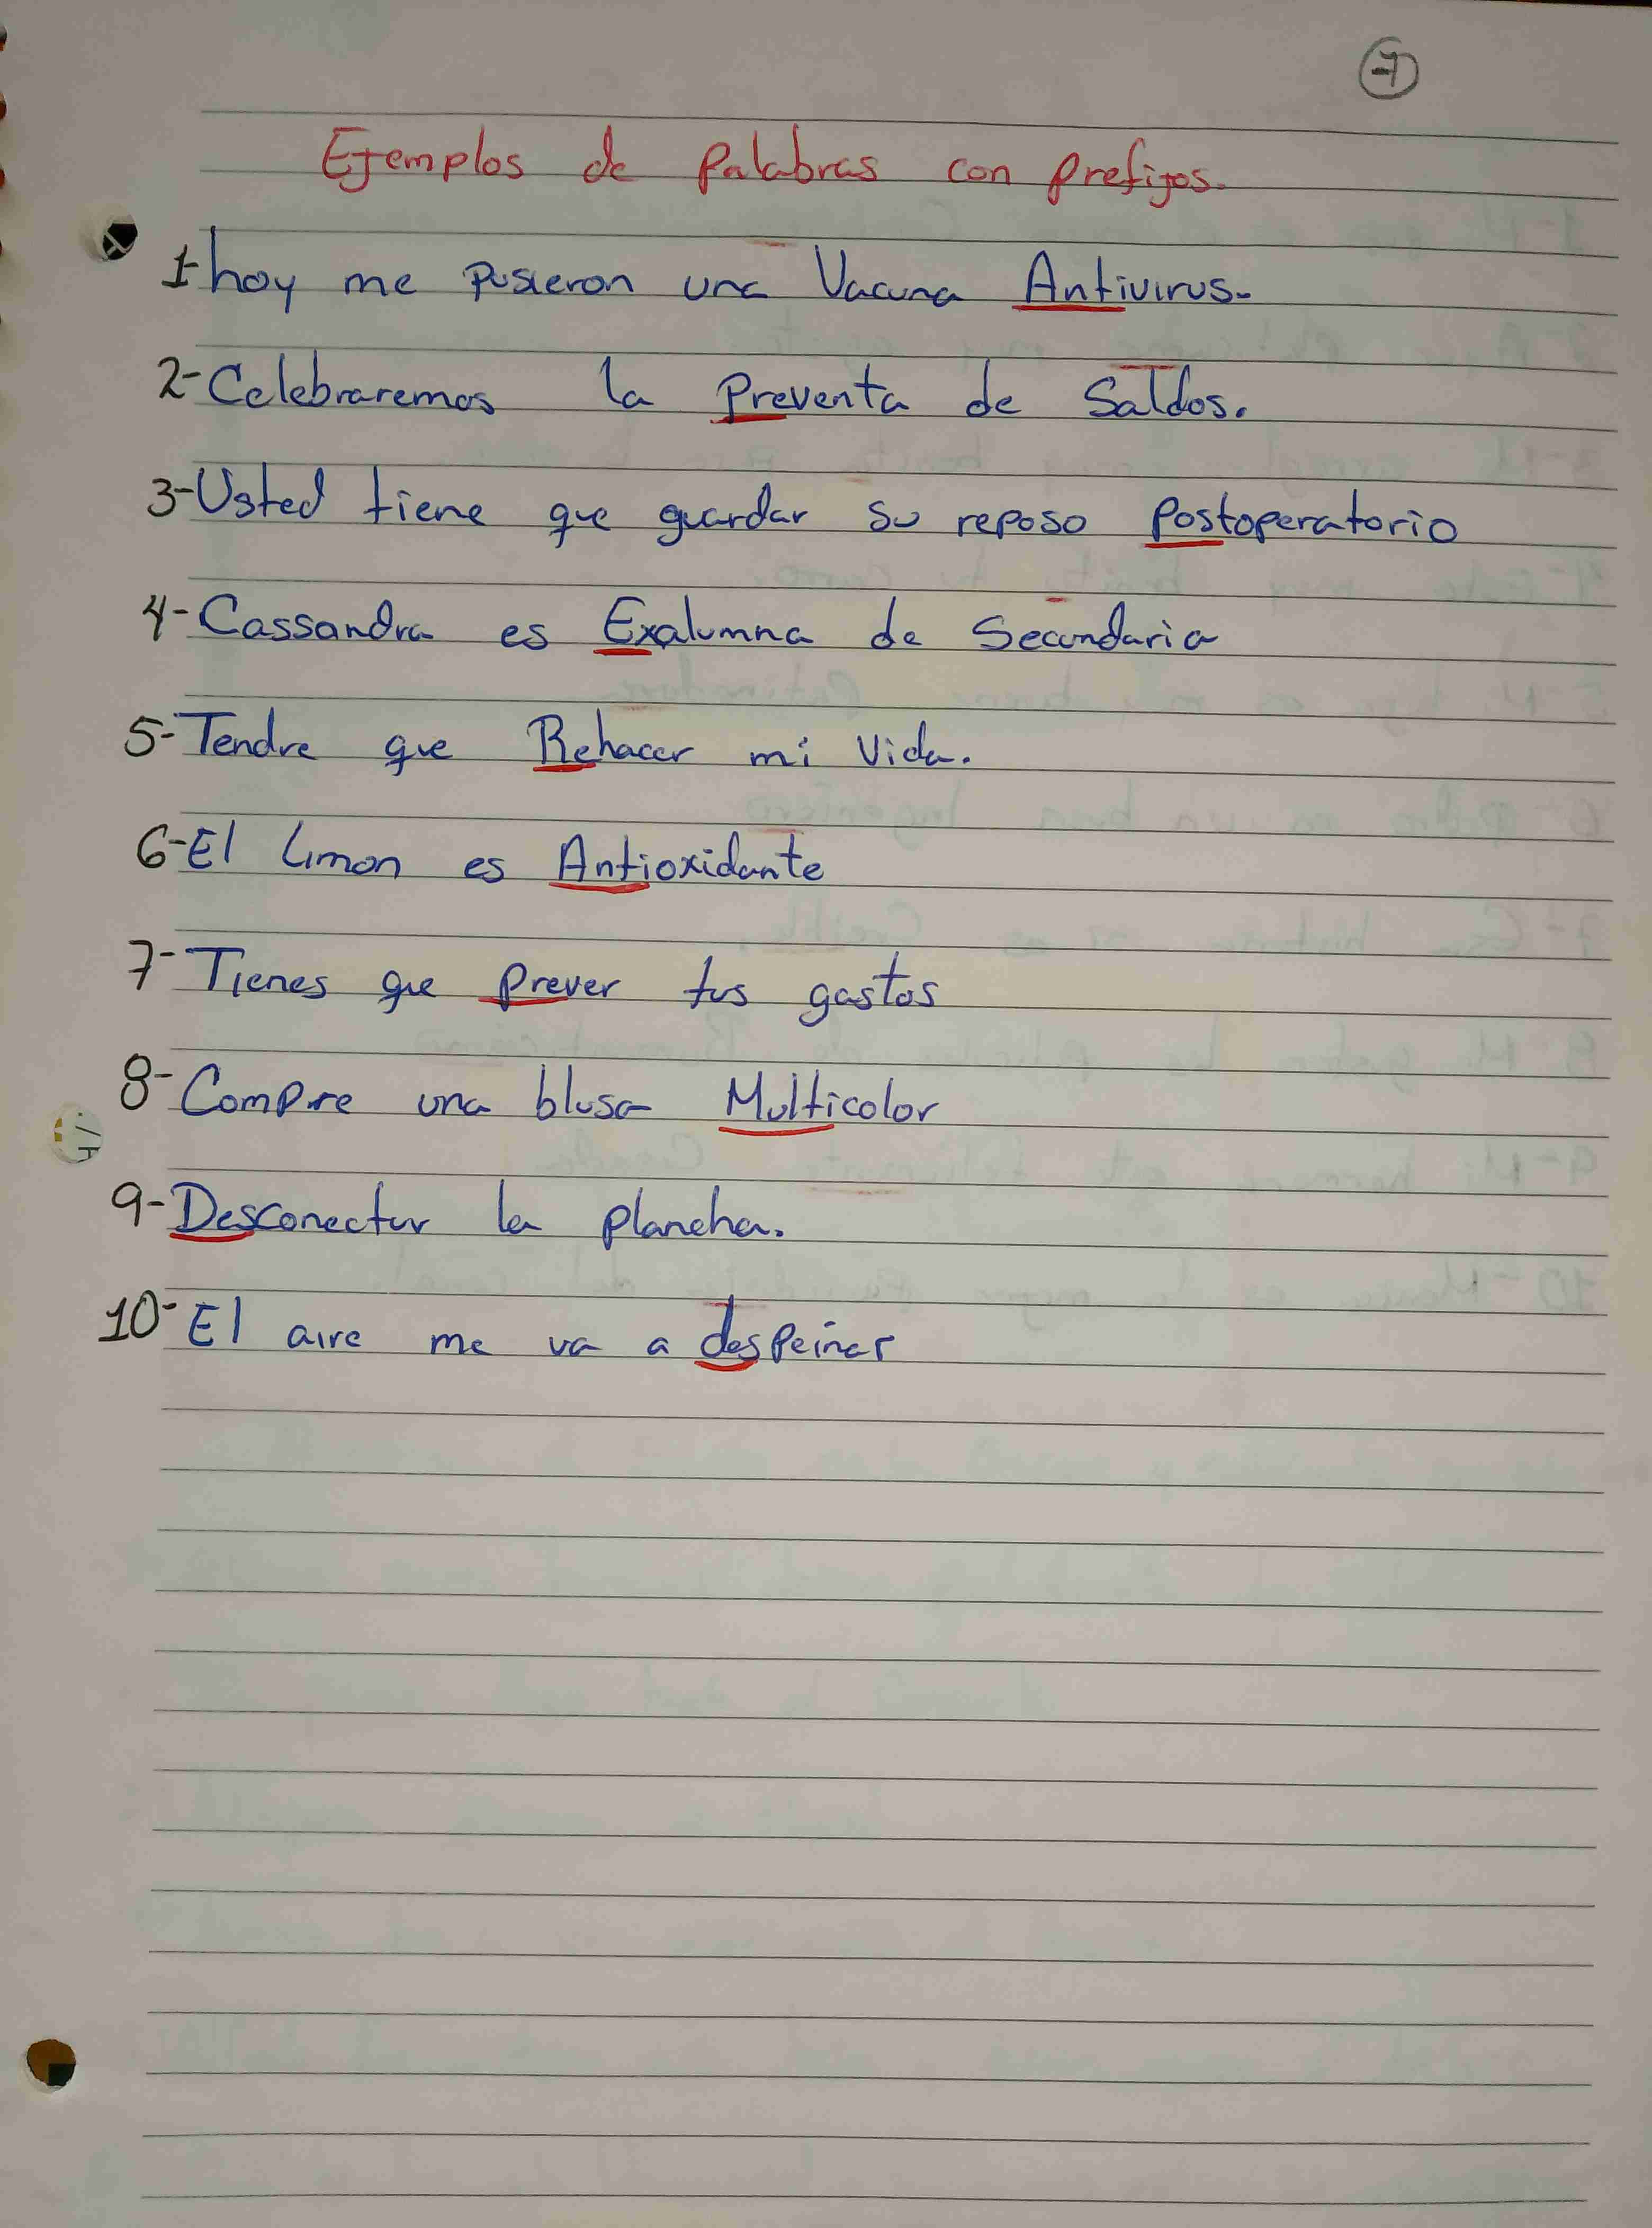 7
Ejemplos de Palabras con prefijos.
1-hoy me pusieron una Vacuna Antivirus.
2-Celebraremos la Preventa de Saldos.
3-Usted tiene que guardar su reposo Postoperatorio
4-Cassandra es Exalumna de Secundaria
5-Tendre que Rehacer mi Vida.
6-El Limon es Antioxidante
7-Tienes que prever tus gastos
8-Compre una blusa Multicolor
9-Desconectar la plancha.
10-El aire me va a despeinar